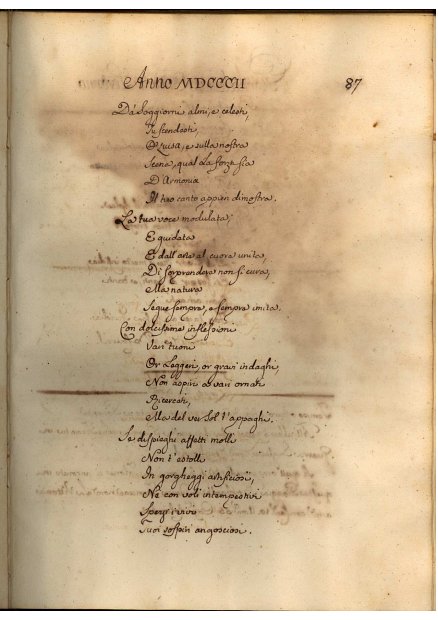 Anno MDCCCII 87
Da' Soggiorni almi, e celesti,
Tu scendesti,
O Luisa, e sulla nostra
Scena, qual La forza sia
D'Armonia
Il tuo canto appien dimostra.
La tua voce modulata,
E guidata
E dall'arte al cuore unita,
Di sorprendere non si cura,
Ma natura
Segue sempre, e sempre imita.
Con dolcissime inflessioni
Vari tuoni
Or Leggeri, or gravi indaghi,
Non aspiri a vari ornati
Ricercati,
Ma del ver sol t'appaghi.
Se dispieghi affetti molli
Non t'estolli
In gorgheggi artificiosi,
Nè con voli intempestivi
I vivi
Tuoi sospiri angosciosi.